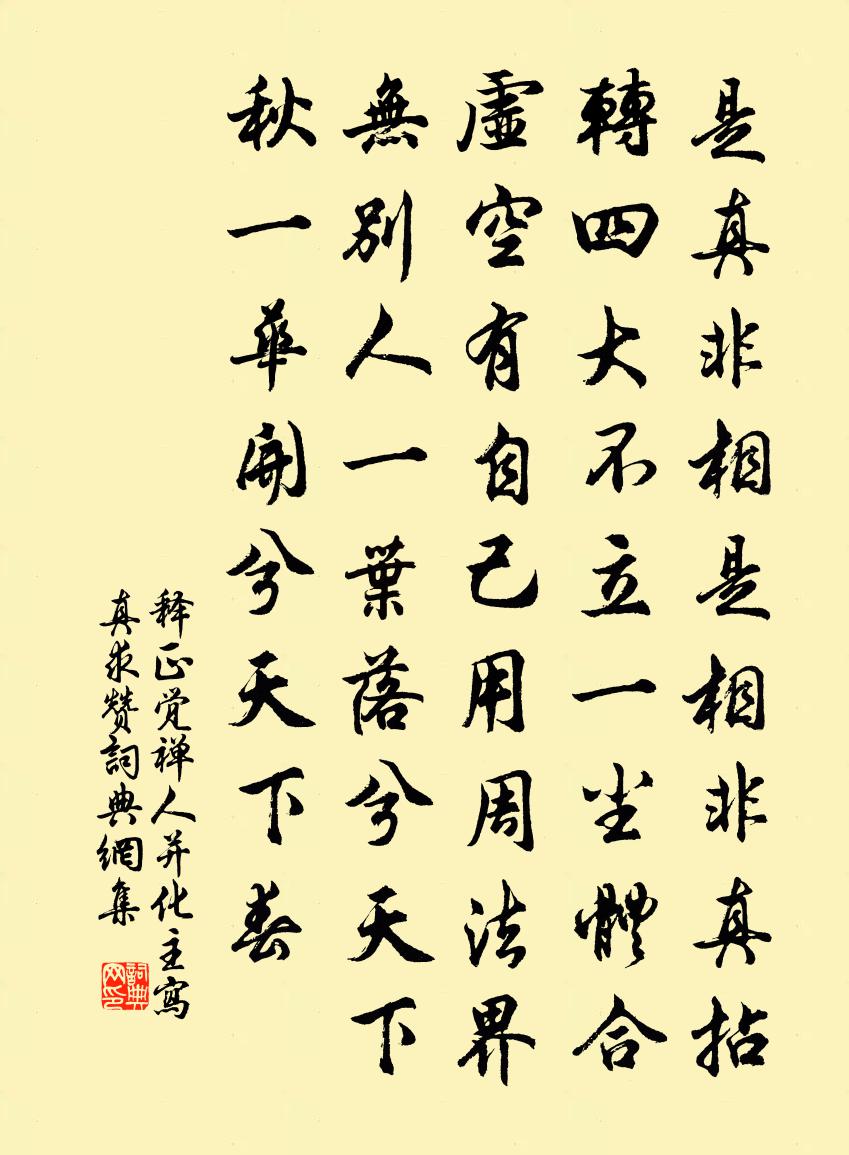 是真非相是相非真拈
轉四大不立一尘體合
虛空有自己用周法界
無別人一葉落兮天下
秋一華開兮天下春
释正觉禅人并化主寫
真求赞詞典網集
詞典网印